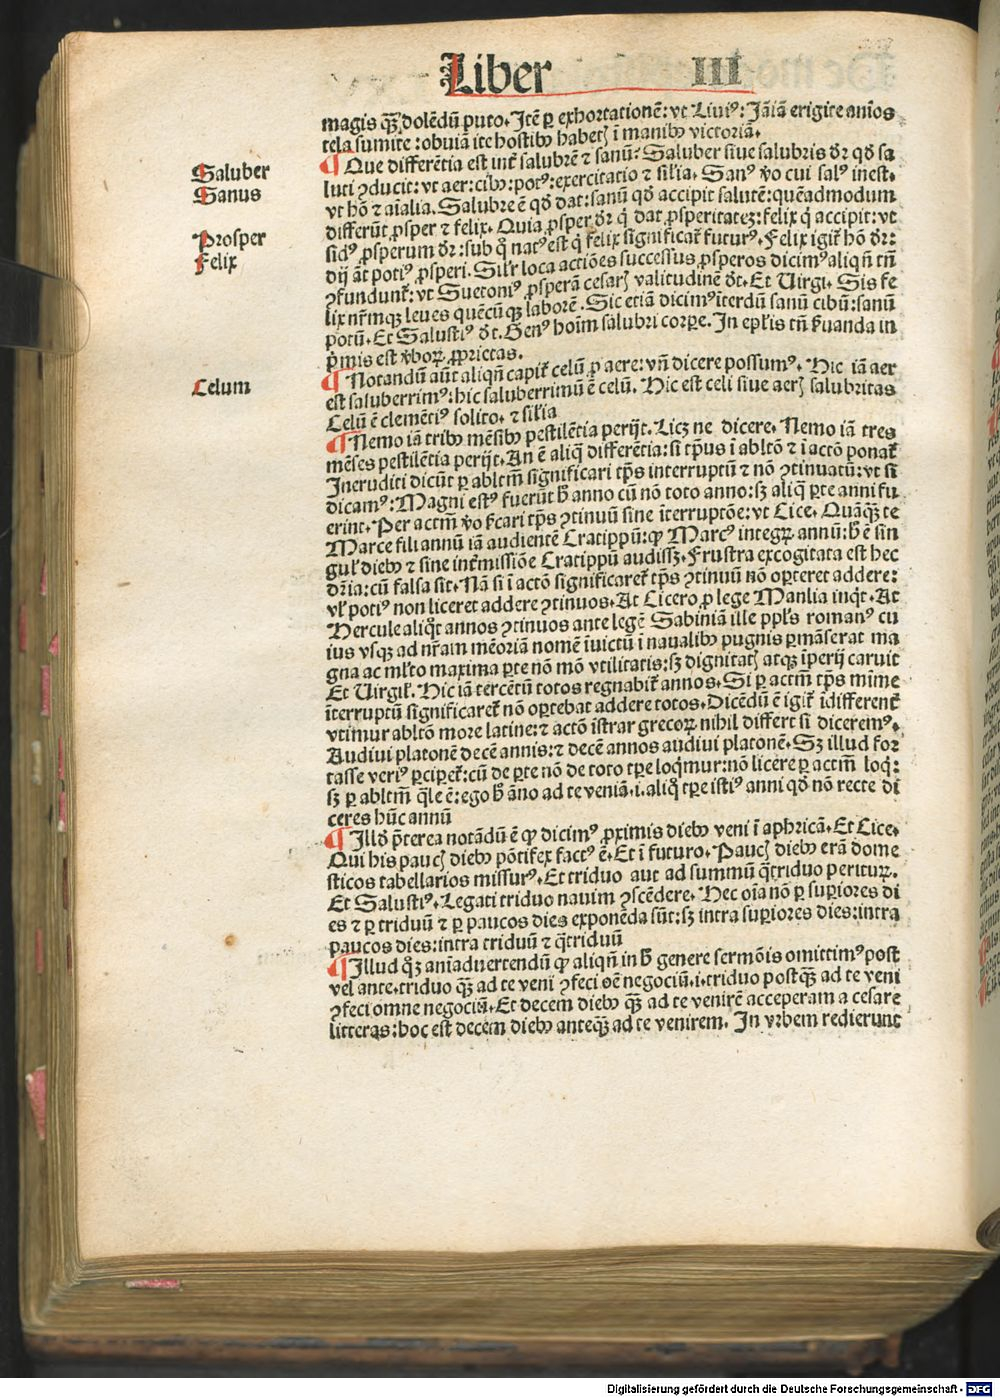 Liber III
magis qȝ dolēdū puto. Itē ꝑ exhortationē: vt Liviꝰ: Iāiā erigite aīos
tela sumite: obuiā ite hostibꝰ habetꝭ ī manibꝰ victoriā.
Saluber
Sanus
Prosper
Felix
¶ Que differētia est int̄ salubrē ⁊ sanū: Saluber siue salubris dr̄ qd̄ sa
luti ꝯducit: vt aer: cibꝰ: potꝰ: exercitatio ⁊ silia. Sanꝰ v̄o cui salꝰ inest.
vt hō ⁊ aīalia. Salubre ē qd̄ dat: sanū qd̄ accipit salutē: quēadmodum
differūt ꝓsper ⁊ felix. Quia ꝓsper dr̄ q̄ dat ꝓsperitatez: felix q̄ accipit: vt
sidꝰ ꝓsperum dr̄: sub q̊ natꝰ est q̄ felix significat᷑ futurꝰ. Felix igit᷑ hō dr̄:
dij āt potiꝰ ꝓsperi. Silr̄ loca actiōes successus ꝓsperos dicimꝰ aliqn̄ tn̄
ꝯfundunt᷑: vt Suetoniꝰ ꝓsperā cesarꝭ valitudinē dt̄. Et Uirgi. Sis fe
lix nr̄mqȝ leues quēcūqȝ laborē. Sic etiā dicimꝰ īterdū sanū cibū: sanū
potū. Et Salustiꝰ dt̄. Genꝰ hoīm salubri corꝑe. In epl̄is tn̄ ẜuanda in
pͥmis est v̄borꝝ ꝓprietas.
Celum
¶ Notandū aūt aliqn̄ capit᷑ celū ꝓ aere: vn̄ dicere possumꝰ. Hic iā aer
est saluberrimꝰ: hic saluberrimū ē celū. Hic est celi siue aerꝭ salubritas
Celū ē clemētiꝰ solito. ⁊ silia
¶ Nemo iā tribꝰ mēsibꝰ pestilētia perijt. Licȝ ne dicere. Nemo iā tres
mēses pestilētia perijt. An ē aliq̄ differētia: si tp̄us ī abltō ⁊ ī actō ponat᷑
Ineruditi dicūt ꝑ abltm̄ significari tp̄s interruptū ⁊ nō ꝯtinuatū: vt si
dicamꝰ: Magni estꝰ fuerūt h̄ anno cū nō toto anno: sȝ aliq̄ ꝑte anni fu
erint. Per actm̄ v̄o ẜcari tp̄s ꝯtinuū sine īterruptōe: vt Cice. Quāqȝ te
Marce fili annū iā audientē Cratippū: ꝙ Marcꝰ integrꝝ annū: h̄ ē sin
gul᷑ diebꝰ ⁊ sine int̄missiōe Cratippū audissȝ. Frustra excogitata est hec
dr̄ia: cū falsa sit. Nā si ī actō significaret᷑ tp̄s ꝯtinuū nō oꝑteret addere:
vl᷑ potiꝰ non liceret addere ꝯtinuos. At Cicero ꝓ lege Manlia inqͥt. At
Hercule aliqͦt annos ꝯtinuos ante legē Sabiniā ille ppl̄s romanꝰ cu
ius vsqȝ ad nr̄am mēoriā nomē īuictū ī naualibꝰ pugnis ꝑmāserat ma
gna ac ml᷑to maxima ꝑte nō mō vtilitatis: sȝ dignitatꝭ atqȝ īperij caruit
Et Uirgil᷑. Hic iā tercētū totos regnabit᷑ annos. Si ꝑ actm̄ tp̄s mīme
īterruptū significaret᷑ nō oportebat addere totos. Dicēdū ē igit᷑ īdifferent᷑
vtimur abltō more latine: ⁊ actō īstrar grecorꝝ nihil differt si diceremꝰ.
Audiui platonē decē annis: ⁊ decē annos audiui platonē. Sȝ illud for
tasse veriꝰ ꝑcipet᷑: cū de ꝑte nō de toto tꝑe loqͥmur: nō licere ꝑ actm̄ loqͥ:
sȝ ꝑ abltm̄ q̄le ē: ego h̄ āno ad te veniā. i. aliq̊ tꝑe istiꝰ anni qd̄ nō recte di
ceres hūc annū
¶ Illd̄ p̄terea notādū ē ꝙ dicimꝰ ꝓximis diebꝰ veni ī aphricā. Et Cice.
Qui his paucꝭ diebꝰ pōtifex factꝰ ē. Et ī futuro. Paucꝭ diebꝰ erā dome
sticos tabellarios missurꝰ. Et triduo aut ad summū q̄triduo periturꝝ.
Et Salustiꝰ. Legati triduo nauim ꝯscēdere. Hec oīa nō ꝑ suꝑiores di
es ⁊ ꝑ triduū ⁊ ꝑ paucos dies exponēda sūt: sȝ intra suꝑiores dies: intra
paucos dies: intra triduū ⁊ q̄triduū
¶ Illud qͦȝ anīaduertendū ꝙ aliqn̄ in h̄ genere sermōis omittimꝰ post
vel ante. triduo qȝ ad te veni ꝯfeci oē negociū. i. triduo postqȝ ad te veni
ꝯfeci omne negociū. Et decem diebꝰ qȝ ad te venirē acceperam a cesare
litteras: hoc est decem diebꝰ anteqȝ ad te venirem. In vrbem redierunt
Digitalisierung gefördert durch die Deutsche Forschungsgemeinschaft - DFG